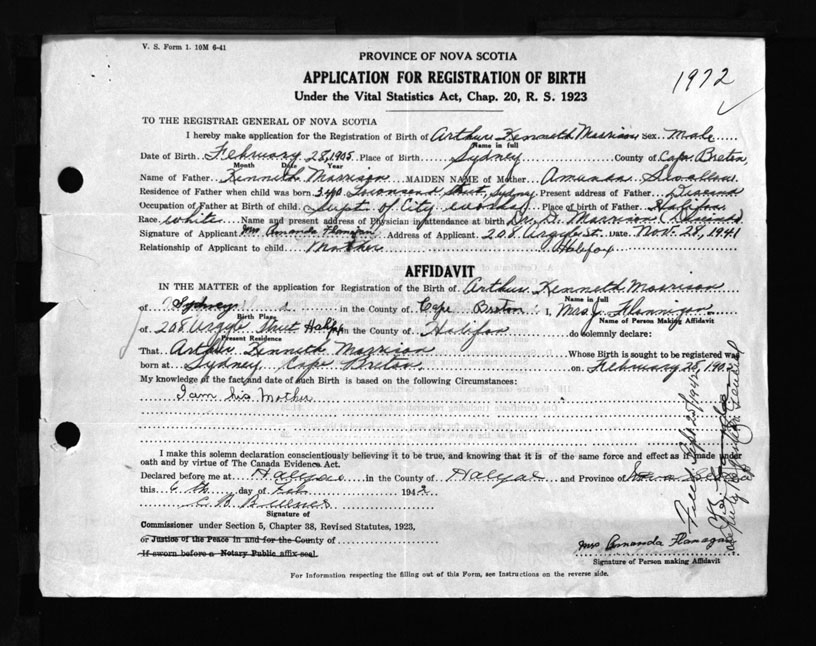 V. S. Form 1. 10M 6-41
PROVINCE OF NOVA SCOTIA
APPLICATION FOR REGISTRATION OF BIRTH
Under the Vital Statistics Act, Chap. 20, R. S. 1923
1972
TO THE REGISTRAR GENERAL OF NOVA SCOTIA
I hereby make application for the Registration of Birth of Arthur Kenneth Morrison Sex Male
Name in full
Date of Birth February 28, 1905 Place of Birth Sydney County of Cape Breton
Month Date Year
Name of Father Kenneth Morrison MAIDEN NAME of Mother Amanda
Residence of Father when child was born 340 Townsend Street, Sydney Present address of Father
Occupation of Father at Birth of child Supt of City works Place of birth of Father Halifax
Race white Name and present address of Physician in attendance at birth Dr. D. Morrison
Signature of Applicant Mrs Amanda Flanagan Address of Applicant 208 Argyle St. Date Nov. 28, 1941
Relationship of Applicant to child Mother Halifax
AFFIDAVIT
IN THE MATTER of the application for Registration of the Birth of Arthur Kenneth Morrison
Name in full
of Sydney in the County of Cape Breton I, Mrs. J. Flannigan
Birth Place Name of Person Making Affidavit
of 208 Argyle Street Halifax in the County of Halifax do solemnly declare:
Present Residence
That Arthur Kenneth Morrison Whose Birth is sought to be registered was
born at Sydney Cape Breton on February 28, 190
My knowledge of the fact and date of such Birth is based on the following Circumstances:
I am his Mother
I make this solemn declaration conscientiously believing it to be true, and knowing that it is of the same force and effect as if made under
oath and by virtue of The Canada Evidence Act.
Declared before me at Halifax in the County of Halifax and Province of Nova Scotia
this 6th day of Feb 1942
Signature of
Commissioner under Section 5, Chapter 38, Revised Statutes, 1923,
or Justice of the Peace in and for the County of
If sworn before a Notary Public affix seal.
Mrs Amanda Flanagan
Signature of Person making Affidavit
For Information respecting the filling out of this Form, see Instructions on the reverse side.
Filed Sept 25/1942
Deputy Registrar General